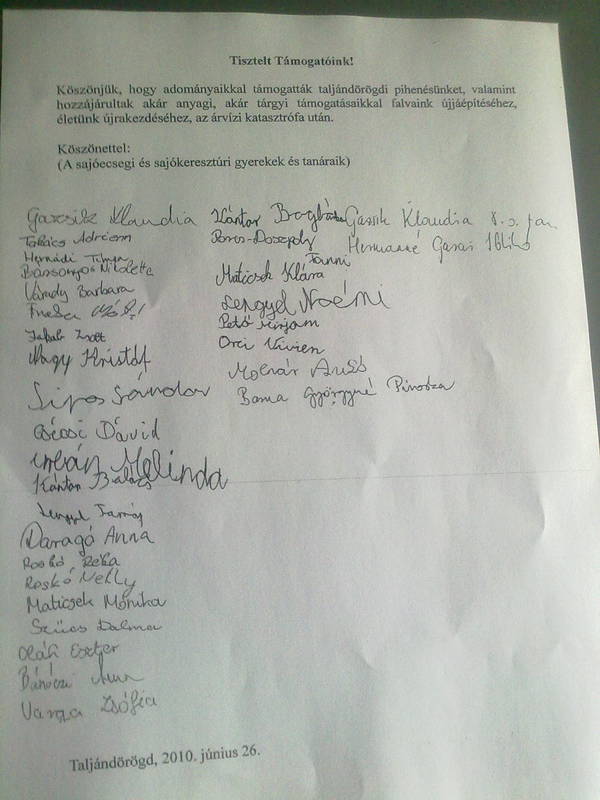 Tisztelt Támogatóink!
Köszönjük, hogy adományaikkal támogatták taljándörögdi pihenésünket, valamint
hozzájárultak akár anyagi, akár tárgyi támogatásaikkal falvaink újjáépítéséhez,
életünk újrakezdéséhez, az árvízi katasztrófa után.
Köszönettel:
(A sajóecsegi és sajókeresztúri gyerekek és tanáraik)
Klaudia
Takács Adrienn
Hernádi Tímea
Nikoletta
Várady Barbara
Jakab Zsolt
Nagy Kristóf
Sipos Sándor
Csécsi Dávid
Urbán Melinda
Kántor Balázs
Lengyel Tamás
Daragó Anna
Roskó Réka
Roskó Nelly
Maticsek Mónika
Szűcs Dalma
Oláh Eszter
Varga Zsófia
Kántor Boglárka
Fanni
Maticsek Klára
Lengyel Noémi
Pető Mirjam
Orci Vivien
Molnár
Barna Györgyné Piroska
Klaudia
Hermanné Garai Ildikó
Taljándörögd, 2010. június 26.